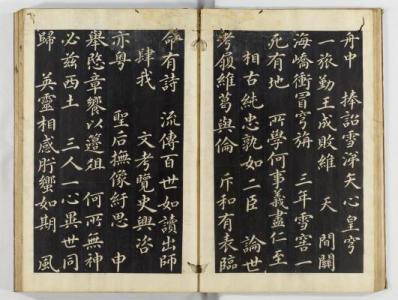 舟中　捧詔雪涕矢心皇穹
一旅勤王成敗維　天　間關
海嶠衝冒穹旃　三年雪窖一
死有地　所學何事義盡仁至
相古純忠孰如二臣　論世
考履維葛與倫　斥和有表臨
命有詩　流傳百世如讀出師
肆我　文考覽史興咨
亦粤　聖后撫像紆思　申
舉愍章饗以籩俎　何所無神
必茲西土　三人一心異世同
歸　英靈相感肸蠁如期　風